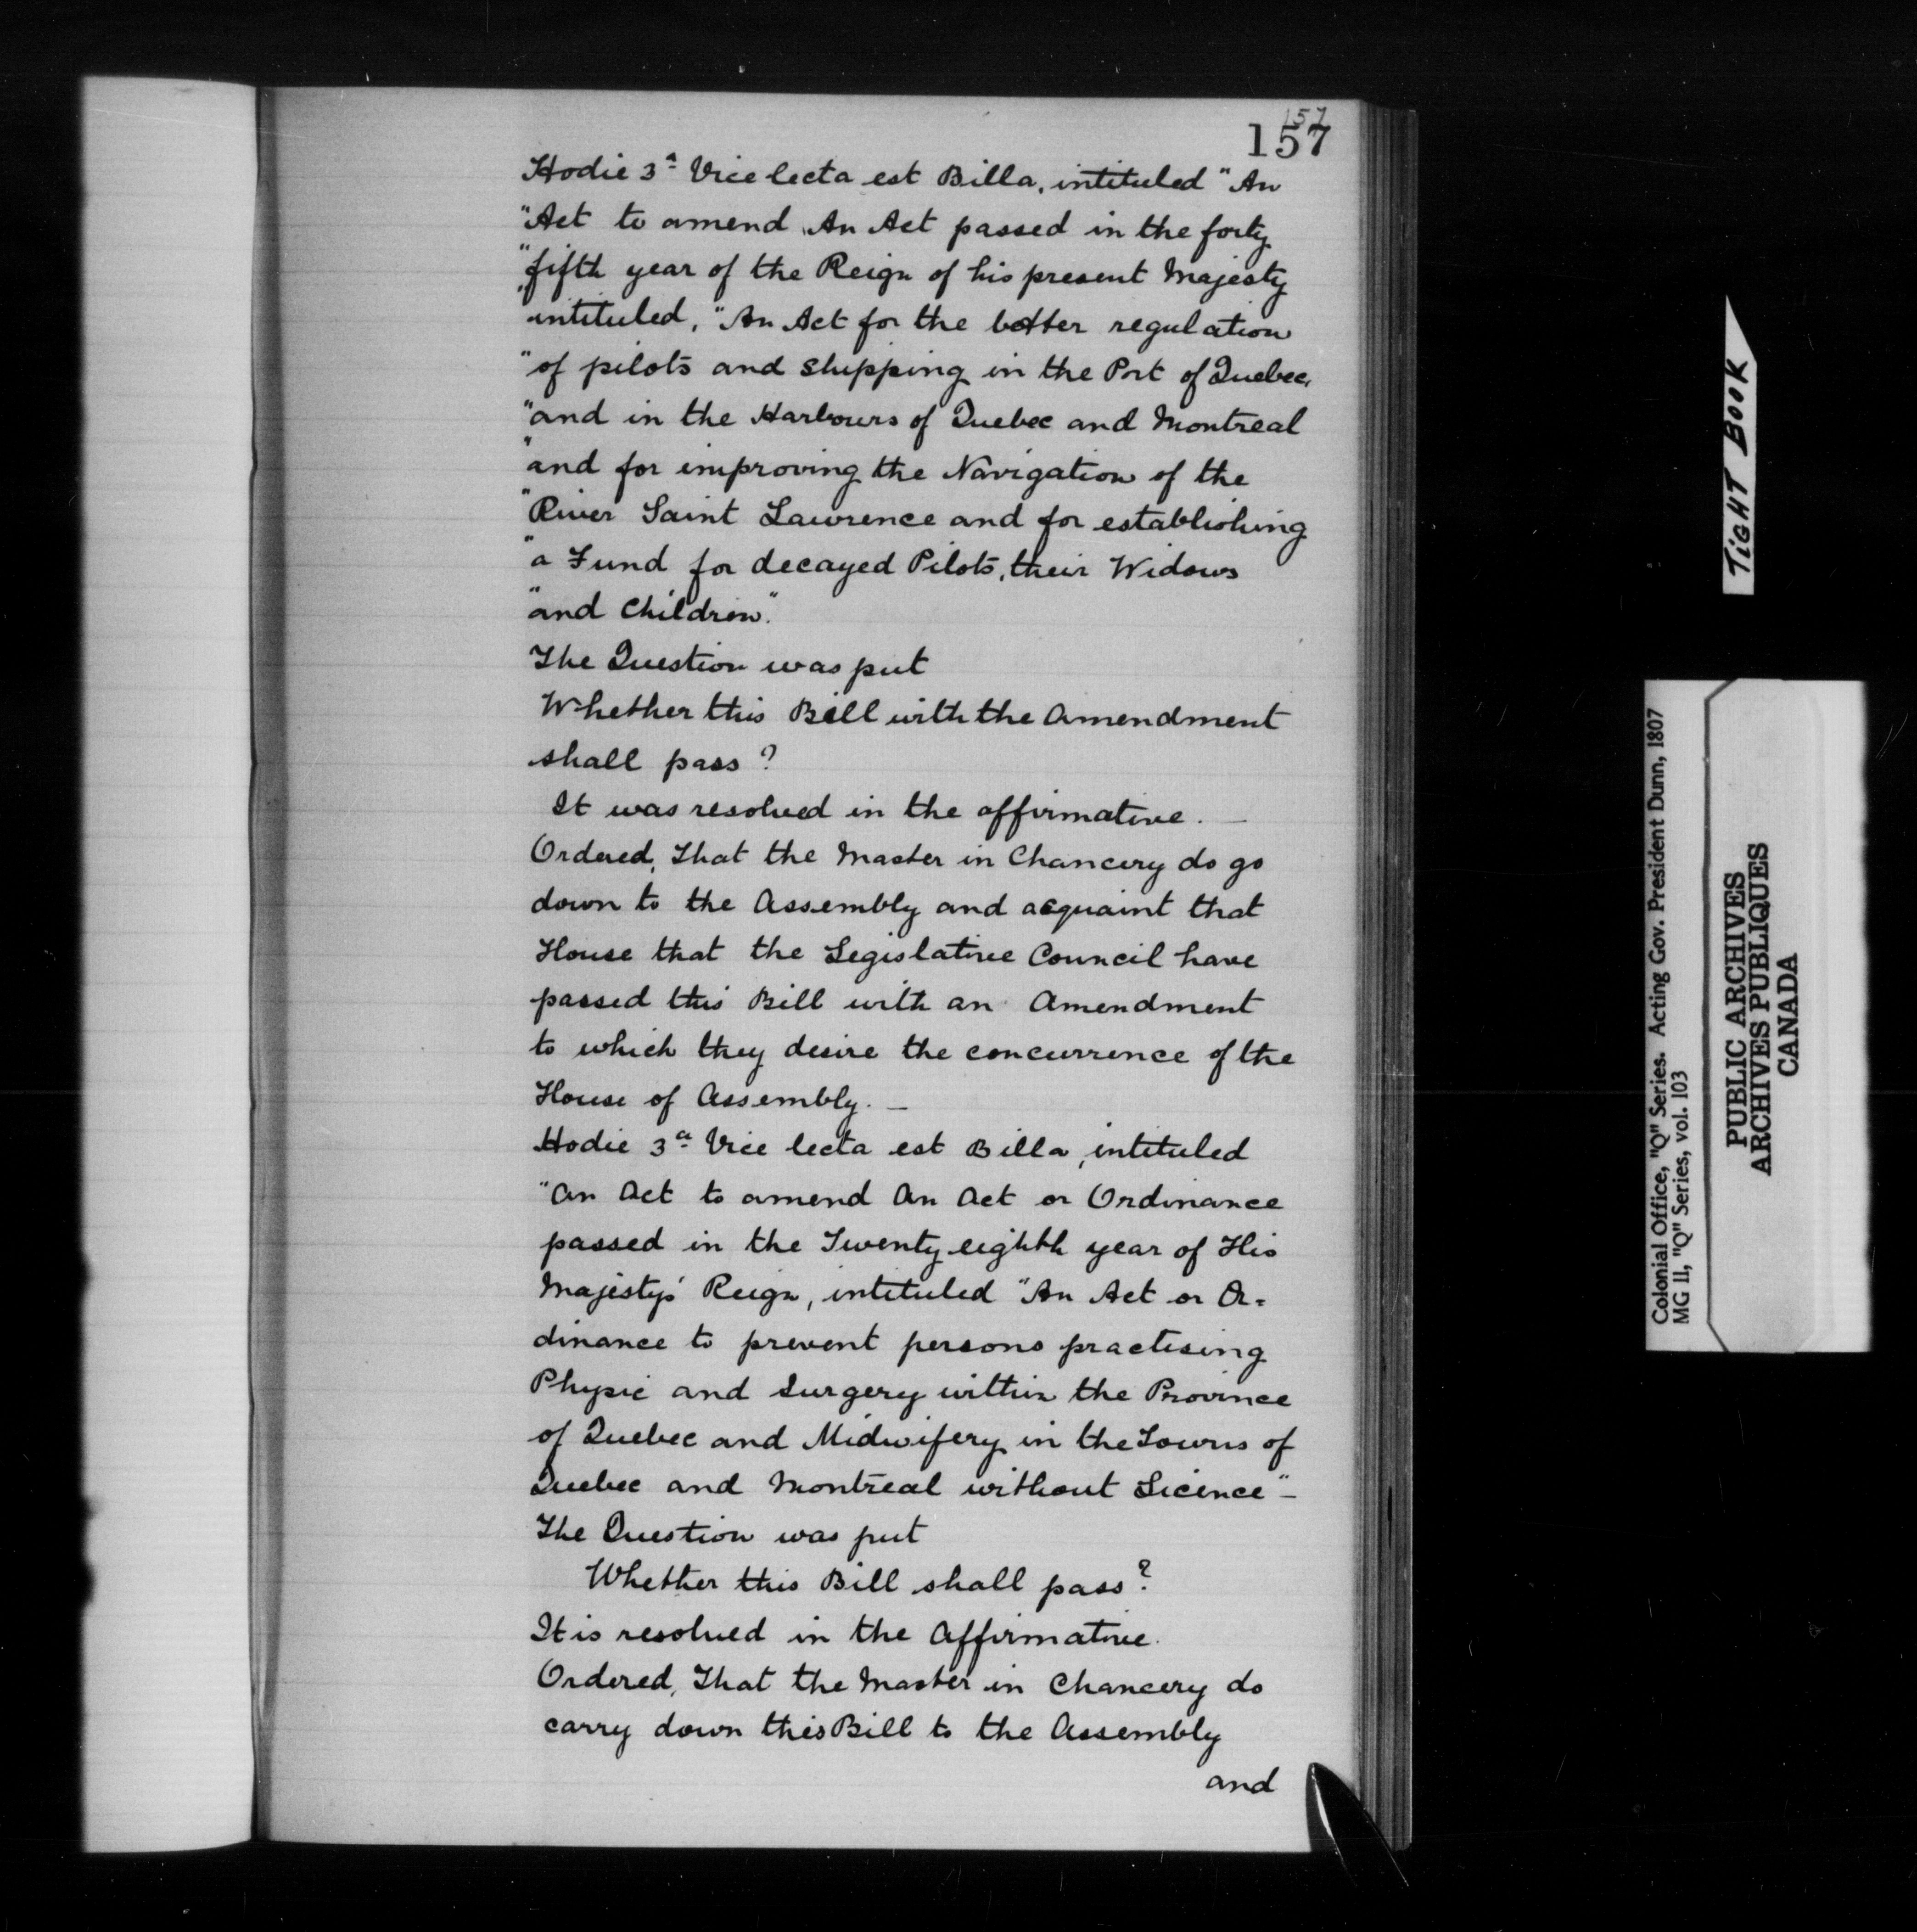 157
157
Hodie 3ª Vice lecta est Billa, intituled "An
"Act to amend An Act passed in the forty
"fifth year of the Reign of his present Majesty
"intituled, "An Act for the better regulation
"of pilots and Shipping in the Port of Quebec,
"and in the Harbours of Quebec and Montreal
"and for improving the Navigation of the
"River Saint Lawrence and for establishing
"a Fund for decayed Pilots, their Widows
"and Children."
The Question was put
Whether this Bill with the Amendment
shall pass?
It was resolved in the affirmative. —
Ordered, That the Master in Chancery do go
down to the Assembly and acquaint that
House that the Legislative Council have
passed this Bill with an Amendment
to which they desire the concurrence of the
House of Assembly. —
Hodie 3ª Vice lecta est Billa, intituled
"An Act to amend An Act or Ordinance
passed in the Twenty eighth year of His
Majesty's Reign, intituled "An Act or Or=
dinance to prevent persons practising
Physic and Surgery within the Province
of Quebec and Midwifery in the Towns of
Quebec and Montreal without Licence" —
The Question was put
Whether this Bill shall pass?
It is resolved in the Affirmative.
Ordered, That the Master in Chancery do
carry down this Bill to the Assembly
and
TIGHT BOOK
Colonial Office, "Q" Series. Acting Gov. President Dunn, 1807
MG 11, "Q" Series, vol. 103
PUBLIC ARCHIVES
ARCHIVES PUBLIQUES
CANADA